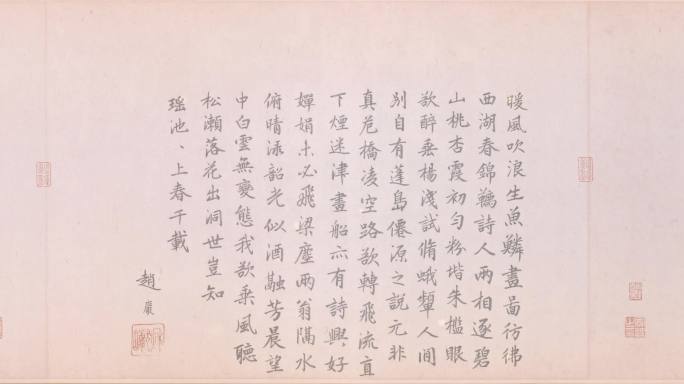 暖風吹浪生魚鱗畫啚彷彿
西湖春錦韉詩人兩相逐碧
山桃杏霞初勻粉堦朱檻眼
欲醉垂楊淺試脩蛾顰人間
別自有蓬島僊源之說元非
真危橋凌空路欲轉飛流直
下煙迷津畫船亦有詩興好
嬋娟未必飛梁塵兩翁隔水
俯晴淥韶光似酒融芳晨望
中白雲無變態我欲乘風聽
松瀨落花出洞世豈知
瑶池、上春千載
趙巖